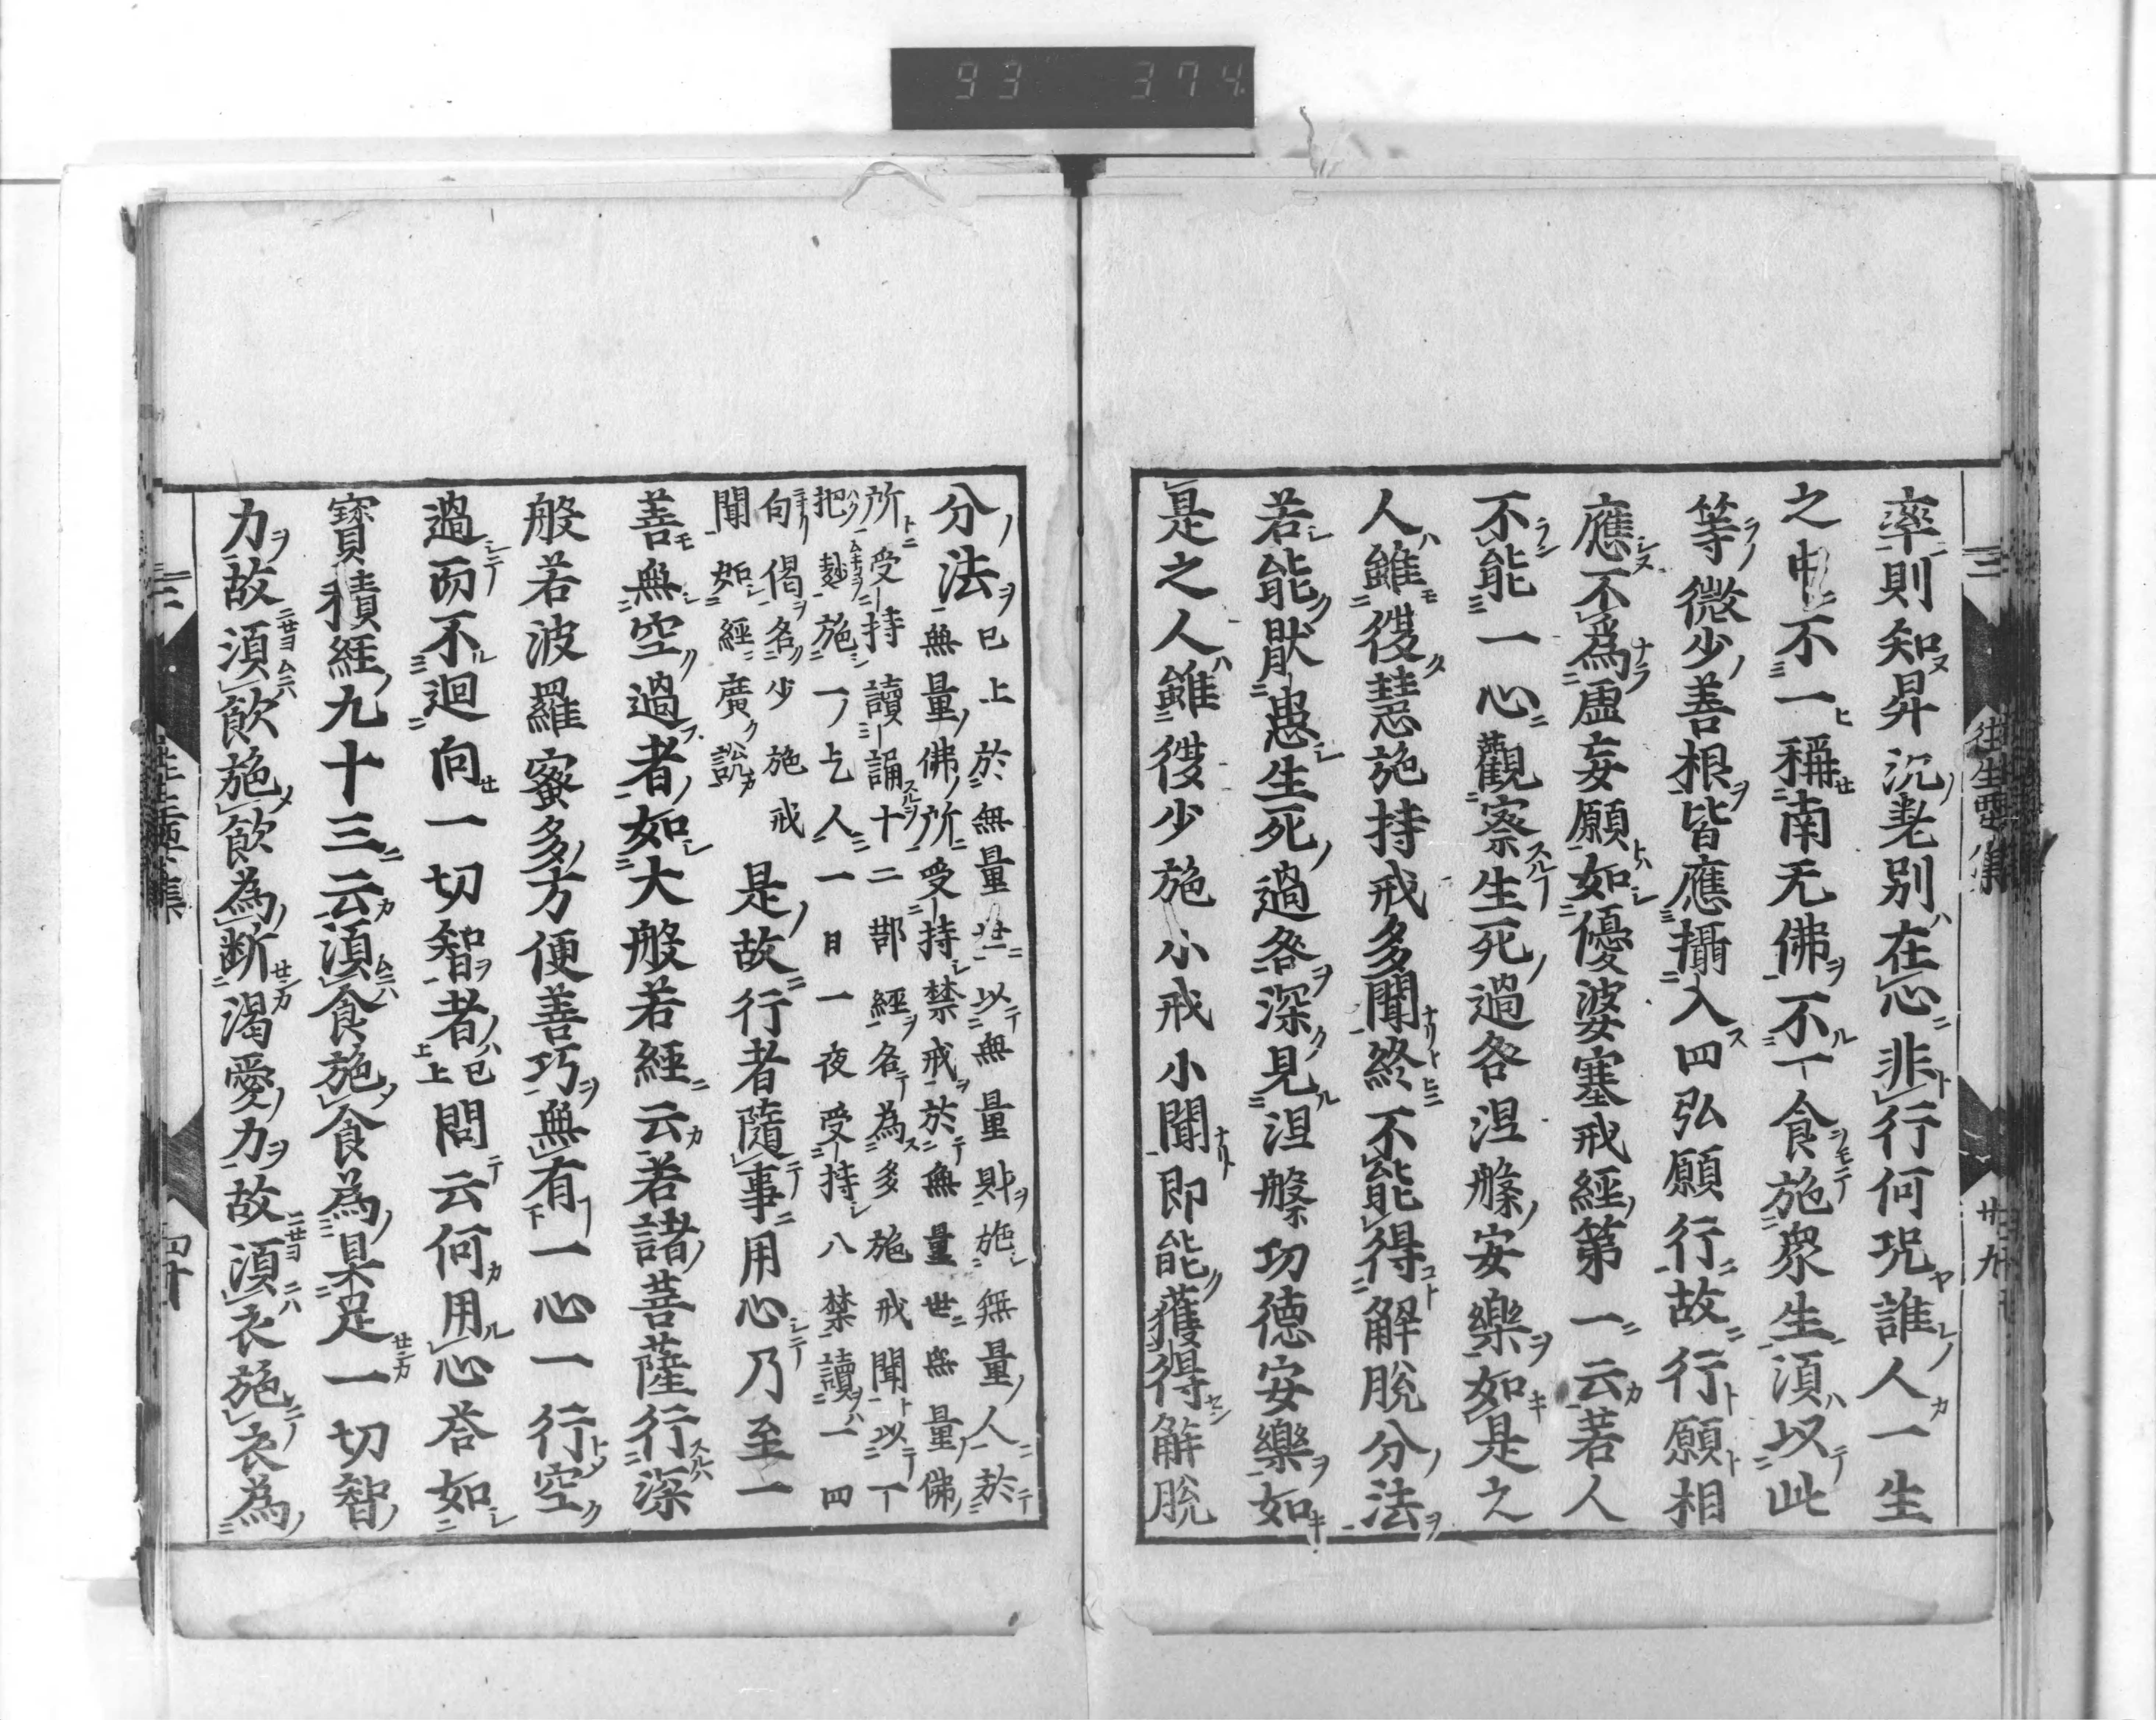 93 374
率則知昇沉差別在心非行何況誰人一生
之中不一稱南无佛不一食施衆生須以此
等微少善根皆應攝入四弘願行故行願相
應不為虛妄願如優婆塞戒經第一云若人
不能一心觀察生死過咎涅槃安樂如是之
人雖復慧施持戒多聞終不能得解脫分法
若能厭患生死過咎深見涅槃功德安樂如
是之人雖復少施小戒小聞即能獲得解脫
三 往生要集 廿九
分法已上於無量世以無量財施無量人於
無量佛所受持禁戒於無量世無量佛
所受持讀誦十二部經各為多施戒聞以一
把麨施一乞人一日一夜受持八禁讀一四
句偈名少施戒
聞如經廣說
是故行者隨事用心乃至一
善無空過者如大般若經云若諸菩薩行深
般若波羅蜜多方便善巧無有一心一行空
過而不迴向一切智者已上問云何用心答如
寶積經九十三云須食施食為具足一切智
力故須飲施飲為斷渴愛力故須衣施衣為
三 往生要集 四十